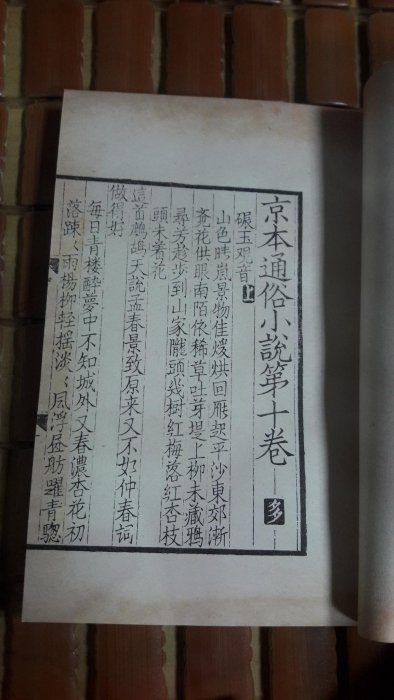 京本通俗小說第十卷 多
碾玉观音 上
山色晴嵐景物佳煖烘回雁起平沙東郊漸
斍花供眼南陌依稀草吐芽堤上柳未藏鴉
尋芳趁步到山家隴頭幾樹紅梅落紅杏枝
頭未着花
這首鷓鴣天說孟春景致原来又不如仲春詞
做得好
每日青楼醉夢中不知城外又春濃杏花初
落疎〻雨楊柳輕摇淡〻風浮画舫躍青驄